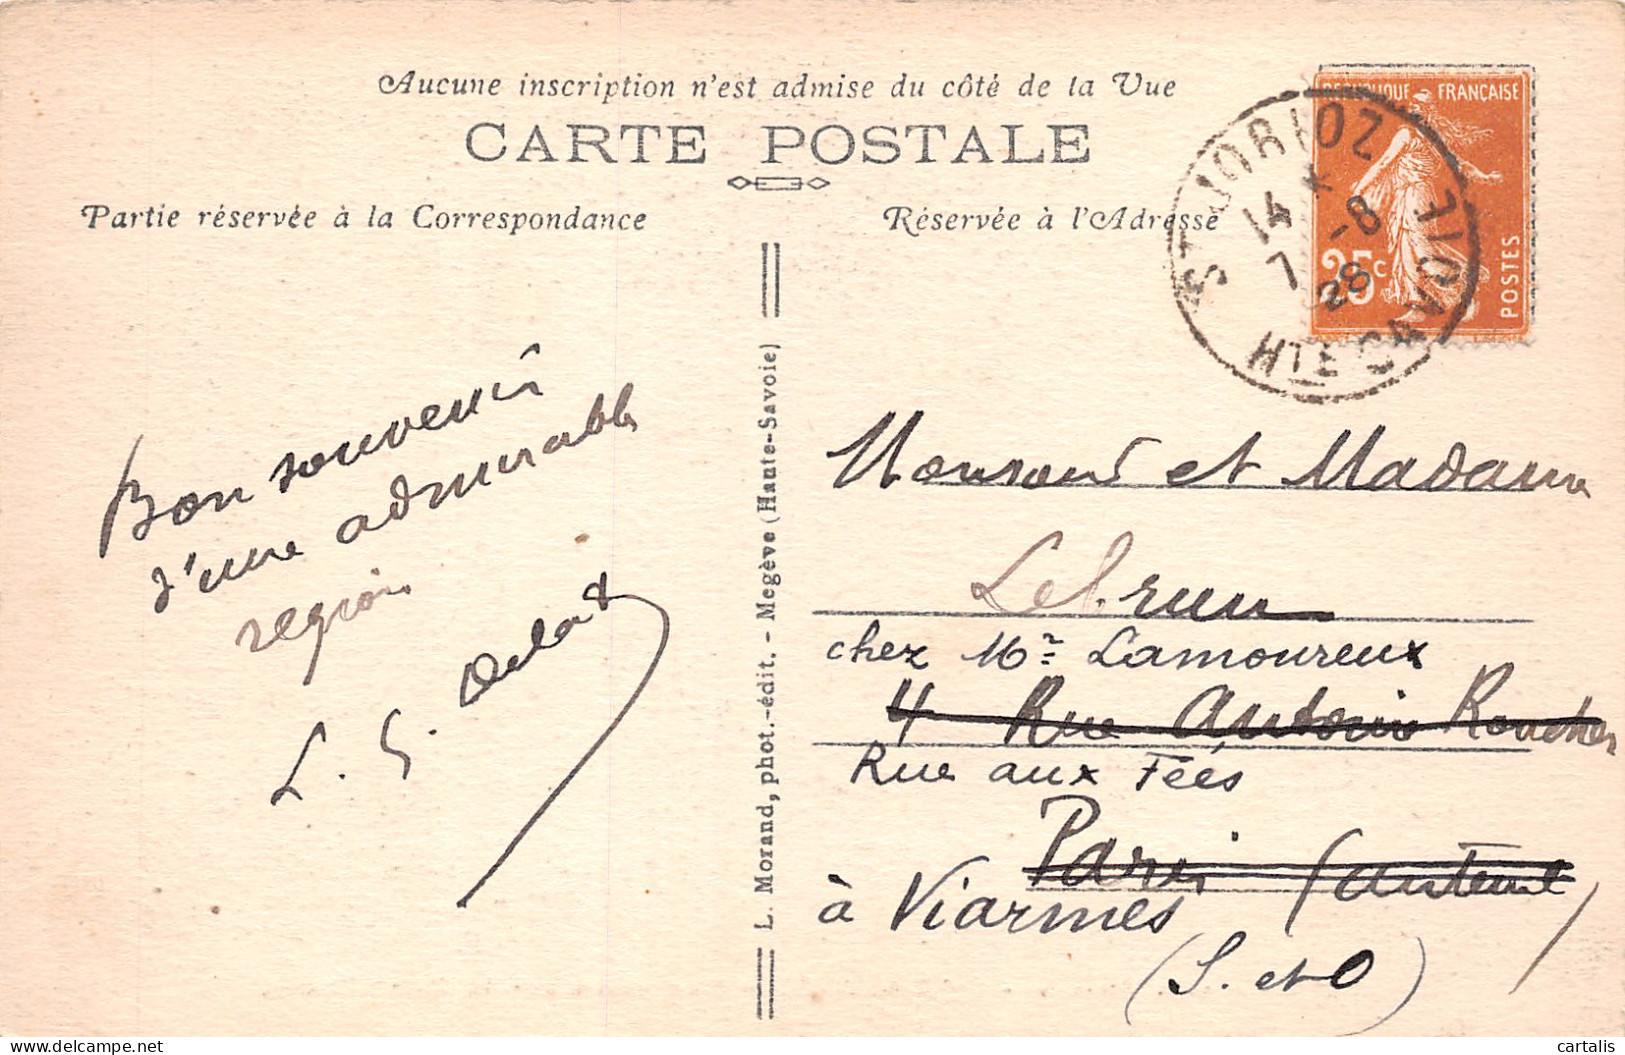 Aucune inscription n'est admise du côté de la Vue
CARTE POSTALE
Partie réservée à la Correspondance
Réservée à l'Adresse
RÉPUBLIQUE FRANÇAISE
25c
POSTES
ST JORIOZ
14
7 -8
28
HTE SAVOIE
Bon souvenir
d'une admirable
région
L. G.
L. Morand, phot.-édit. - Megève (Haute-Savoie)
Monsieur et Madame
Lebrun
chez Mr Lamoureux
4 Rue Antonin Roucher
Rue aux Fées
Paris (Auteuil)
à Viarmes
(S. et O)
delcampe.net
cartalis